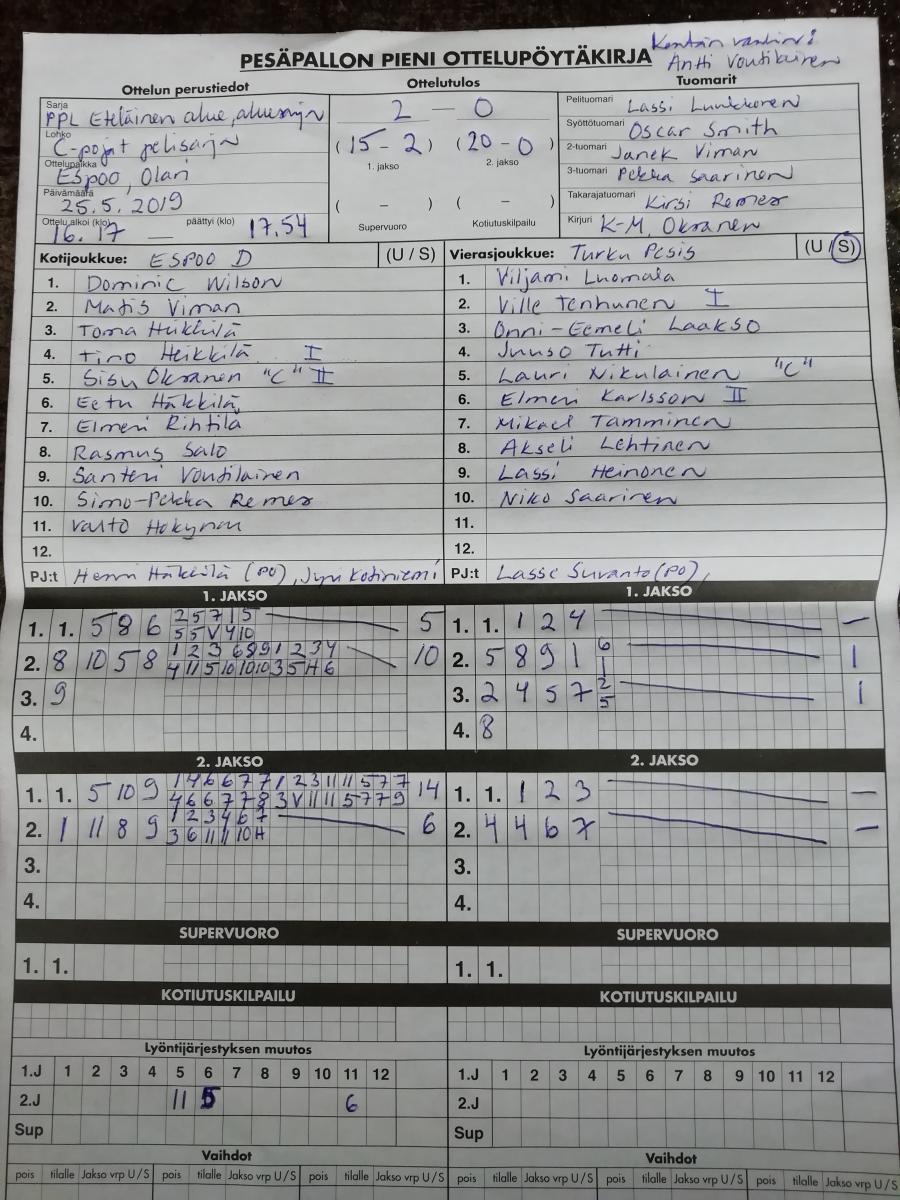 Kentän vanhin:
Antti Voutilainen
PESÄPALLON PIENI OTTELUPÖYTÄKIRJA
Ottelun perustiedot
Sarja
PPL Eteläinen alue, aluesarja
Lohko
C-pojat pelisarja
Ottelupaikka
Espoo, Olari
Päivämäärä
25.5.2019
Ottelu alkoi (klo) päättyi (klo)
16.17 — 17.54
Ottelutulos
2 — 0
(15 - 2) (20 - 0)
1. jakso 2. jakso
( – ) ( – )
Supervuoro Kotiutuskilpailu
Tuomarit
Pelituomari Lassi Luukkonen
Syöttötuomari Oscar Smith
2-tuomari Janek Viman
3-tuomari Pekka Saarinen
Takarajatuomari Kirsi Remes
Kirjuri K-M. Okranen
Kotijoukkue: ESPOO D (U / S)
1. Dominic Wilson
2. Matis Viman
3. Toma Häkkilä
4. Tino Heikkilä I
5. Sisu Okranen "C" II
6. Eetu Häkkilä
7. Elmeri Rihtilä
8. Rasmus Salo
9. Santeri Voutilainen
10. Simo-Pekka Remes
11. Valto
12.
PJ:t Henri Häkkilä (PO), Jyri Kotiniemi
Vierasjoukkue: Turku Pesis (U / S)
1. Viljami Luomala
2. Ville Tenhunen I
3. Onni-Eemeli Laakso
4. Juuso Tutti
5. Lauri Nikulainen "C"
6. Elmeri Karlsson II
7. Mikael Tamminen
8. Akseli Lehtinen
9. Lassi Heinonen
10. Niko Saarinen
11.
12.
PJ:t Lasse Suvanto (PO),
1. JAKSO
1. 1. 5 8 6 2 5 7 1 5 5
5 5 V 4 10
2. 8 10 5 8 1 2 3 6 8 9 1 2 3 4 10
4 11 5 10 10 10 3 5 H 6
3. 9
4.
1. JAKSO
1. 1. 1 2 4 —
2. 5 8 9 1 6 1
1
3. 2 4 5 7 2 1
5
4. 8
2. JAKSO
1. 1. 5 10 9 1 4 6 6 7 7 1 2 3 11 11 5 7 7 14
4 6 6 7 7 8 3 V 11 11 5 7 7 9
2. 1 11 8 9 1 2 3 4 6 7 6
3 6 11 11 10 H
3.
4.
2. JAKSO
1. 1. 1 2 3 —
2. 4 4 6 7 —
3.
4.
SUPERVUORO
1. 1.
SUPERVUORO
1. 1.
KOTIUTUSKILPAILU
KOTIUTUSKILPAILU
Lyöntijärjestyksen muutos
1.J 1 2 3 4 5 6 7 8 9 10 11 12
2.J 11 5 6
Sup
Lyöntijärjestyksen muutos
1.J 1 2 3 4 5 6 7 8 9 10 11 12
2.J
Sup
Vaihdot
pois tilalle Jakso vrp U/S pois tilalle Jakso vrp U/S pois tilalle Jakso vrp U/S
Vaihdot
pois tilalle Jakso vrp U/S pois tilalle Jakso vrp U/S pois tilalle Jakso vrp U/S